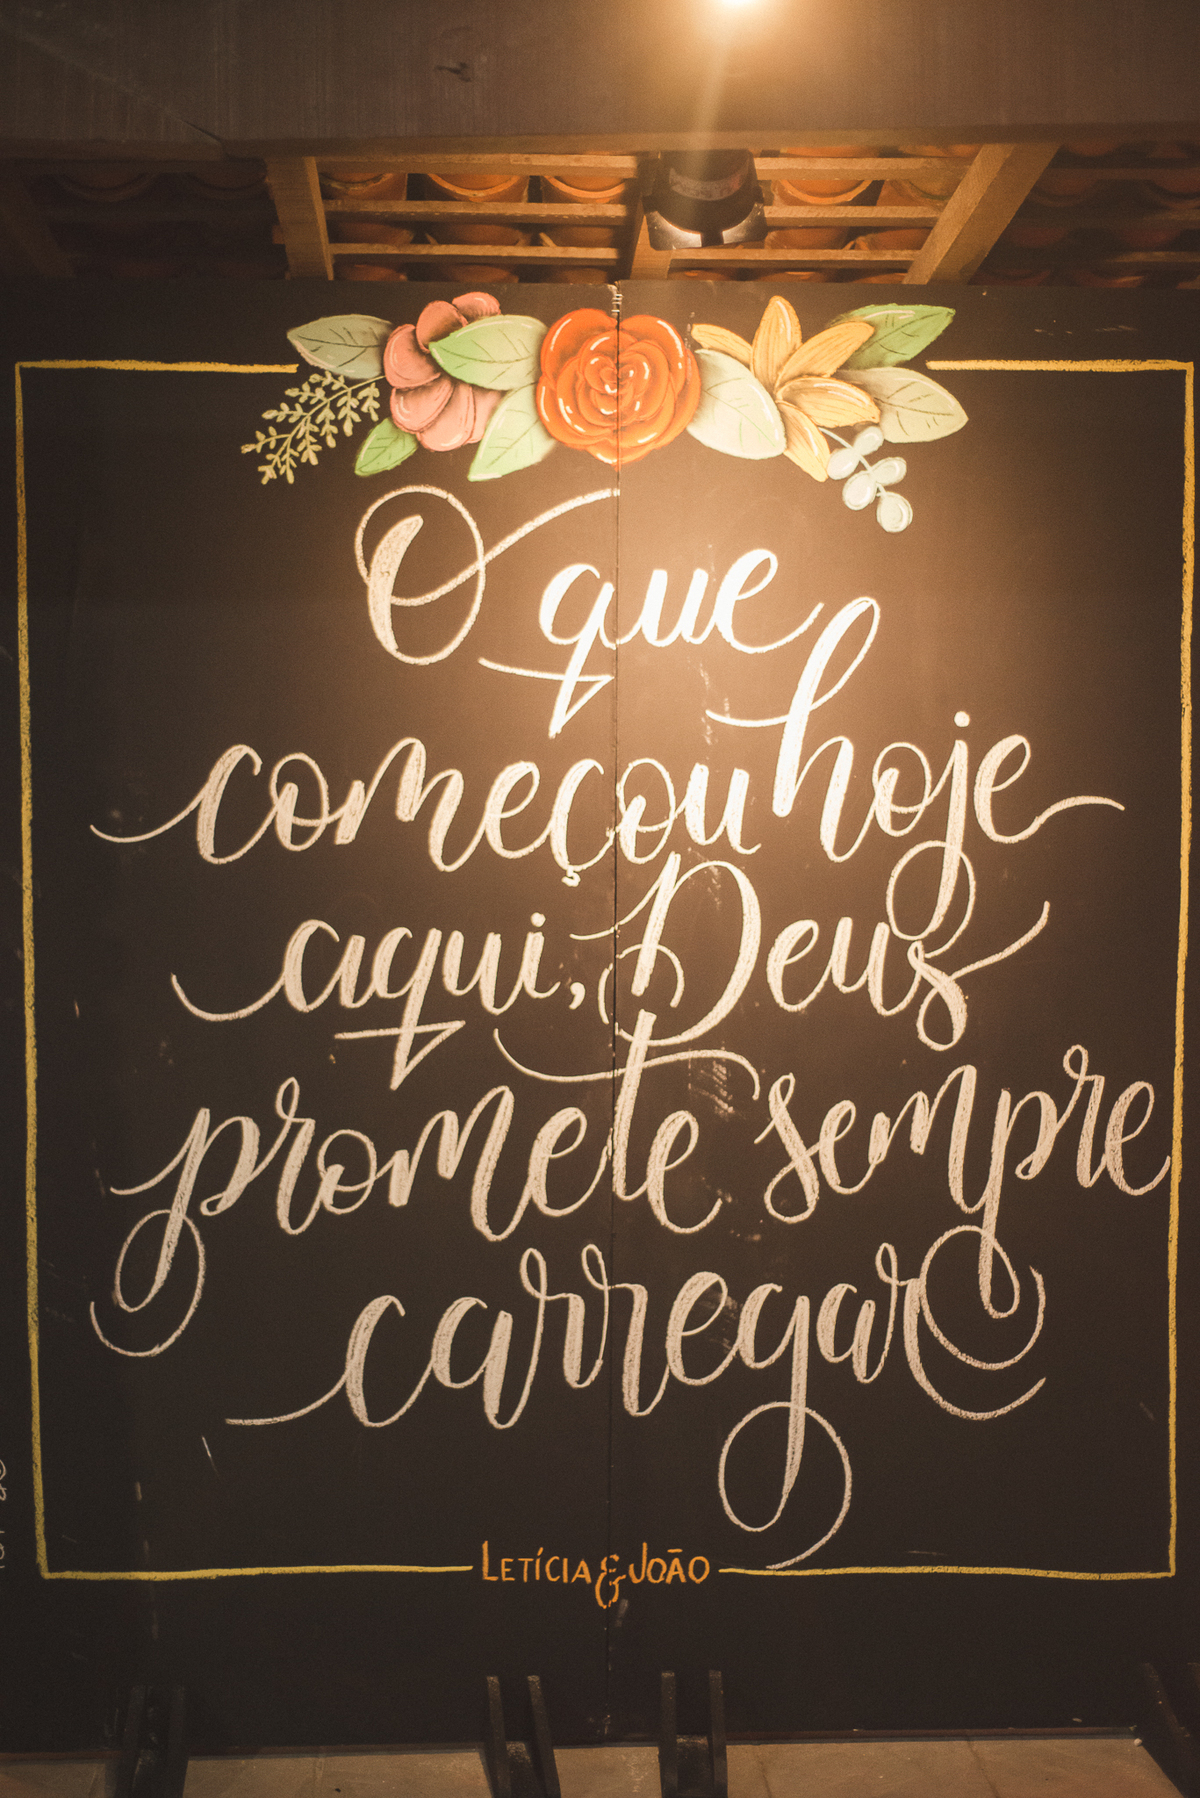 O que
começou hoje
aqui, Deus
promete sempre
carregar
LETÍCIA & JOÃO